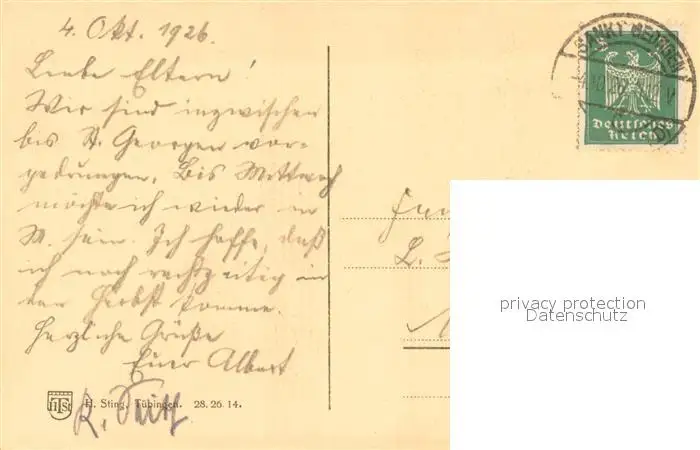 4. Okt. 1926.
Liebe Eltern!
Wir sind inzwischen
bis St. Georgen vor-
gedrungen. Bis Mittwoch
möchte ich wieder in
M. sein. Ich hoffe, daß
ich noch rechtzeitig in
den Herbst komme.
Herzliche Grüße
Euer Albert
SANKT GEORGEN
Deutsches
Reich
privacy protection
Datenschutz
HTSt
H. Sting, Tübingen. 28.26 14.